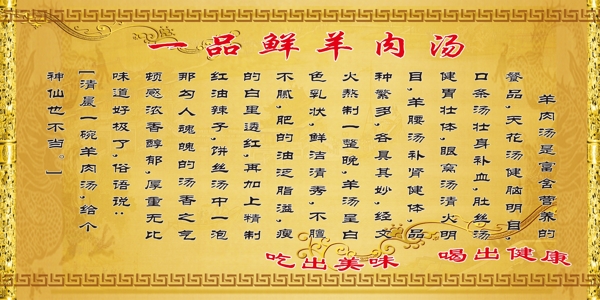 一品鲜羊肉汤
羊肉汤是富含营养的
餐品,天花汤健脑明目,
口条汤壮身补血,肚丝汤
健胃壮体,眼窝汤清火明
目,羊腰汤补肾健体,品
种繁多,各具其妙,经文
火熬制一整晚,羊汤呈白
色乳状,鲜洁清秀,不膻
不腻,肥的油泛脂溢,瘦
的白里透红,再加上精制
红油辣子,饼丝汤中一泡
那勾人魂魄的汤香之气
顿感浓香醇郁,厚重无比
味道好极了,俗语说:
[清晨一碗羊肉汤,给个
神仙也不当。]
吃出美味 喝出健康